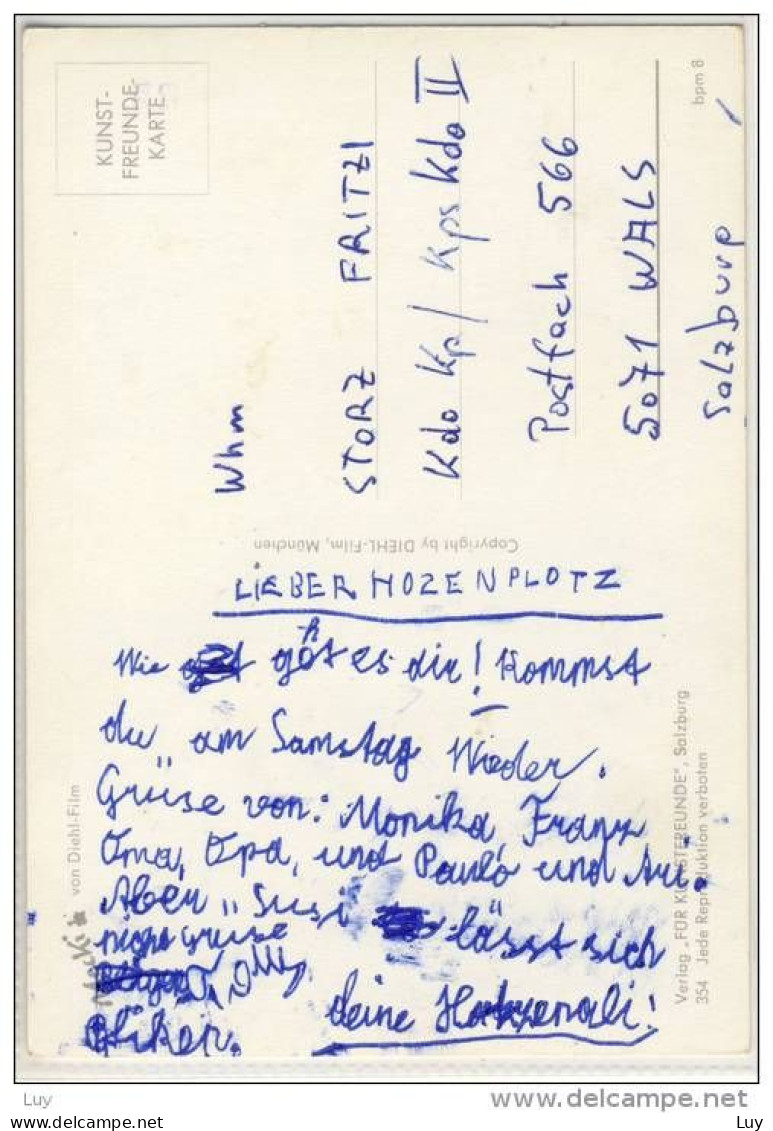 KUNST-
FREUNDE-
KARTE
Whm
STORZ FRITZI
Kdo Kp / Kps Kdo II
Postfach 566
5071 WALS
Salzburg
bpm 8
Copyright by DIEHL-Film, München
LIEBER HOZENPLOTZ
Wie geht es dir! Kommst
du am Samstag Wieder.
Grüse von: Monika, Franz
Oma, Opa, und Paulo und Ari.
Aber „ Susi lässt sich
nicht Grüse
deine Hatzenali!
von Diehl-Film
Verlag „FÜR KUNSTFREUNDE", Salzburg
354 Jede Reproduktion verboten
Luy
www.delcampe.net
Luy
Luy